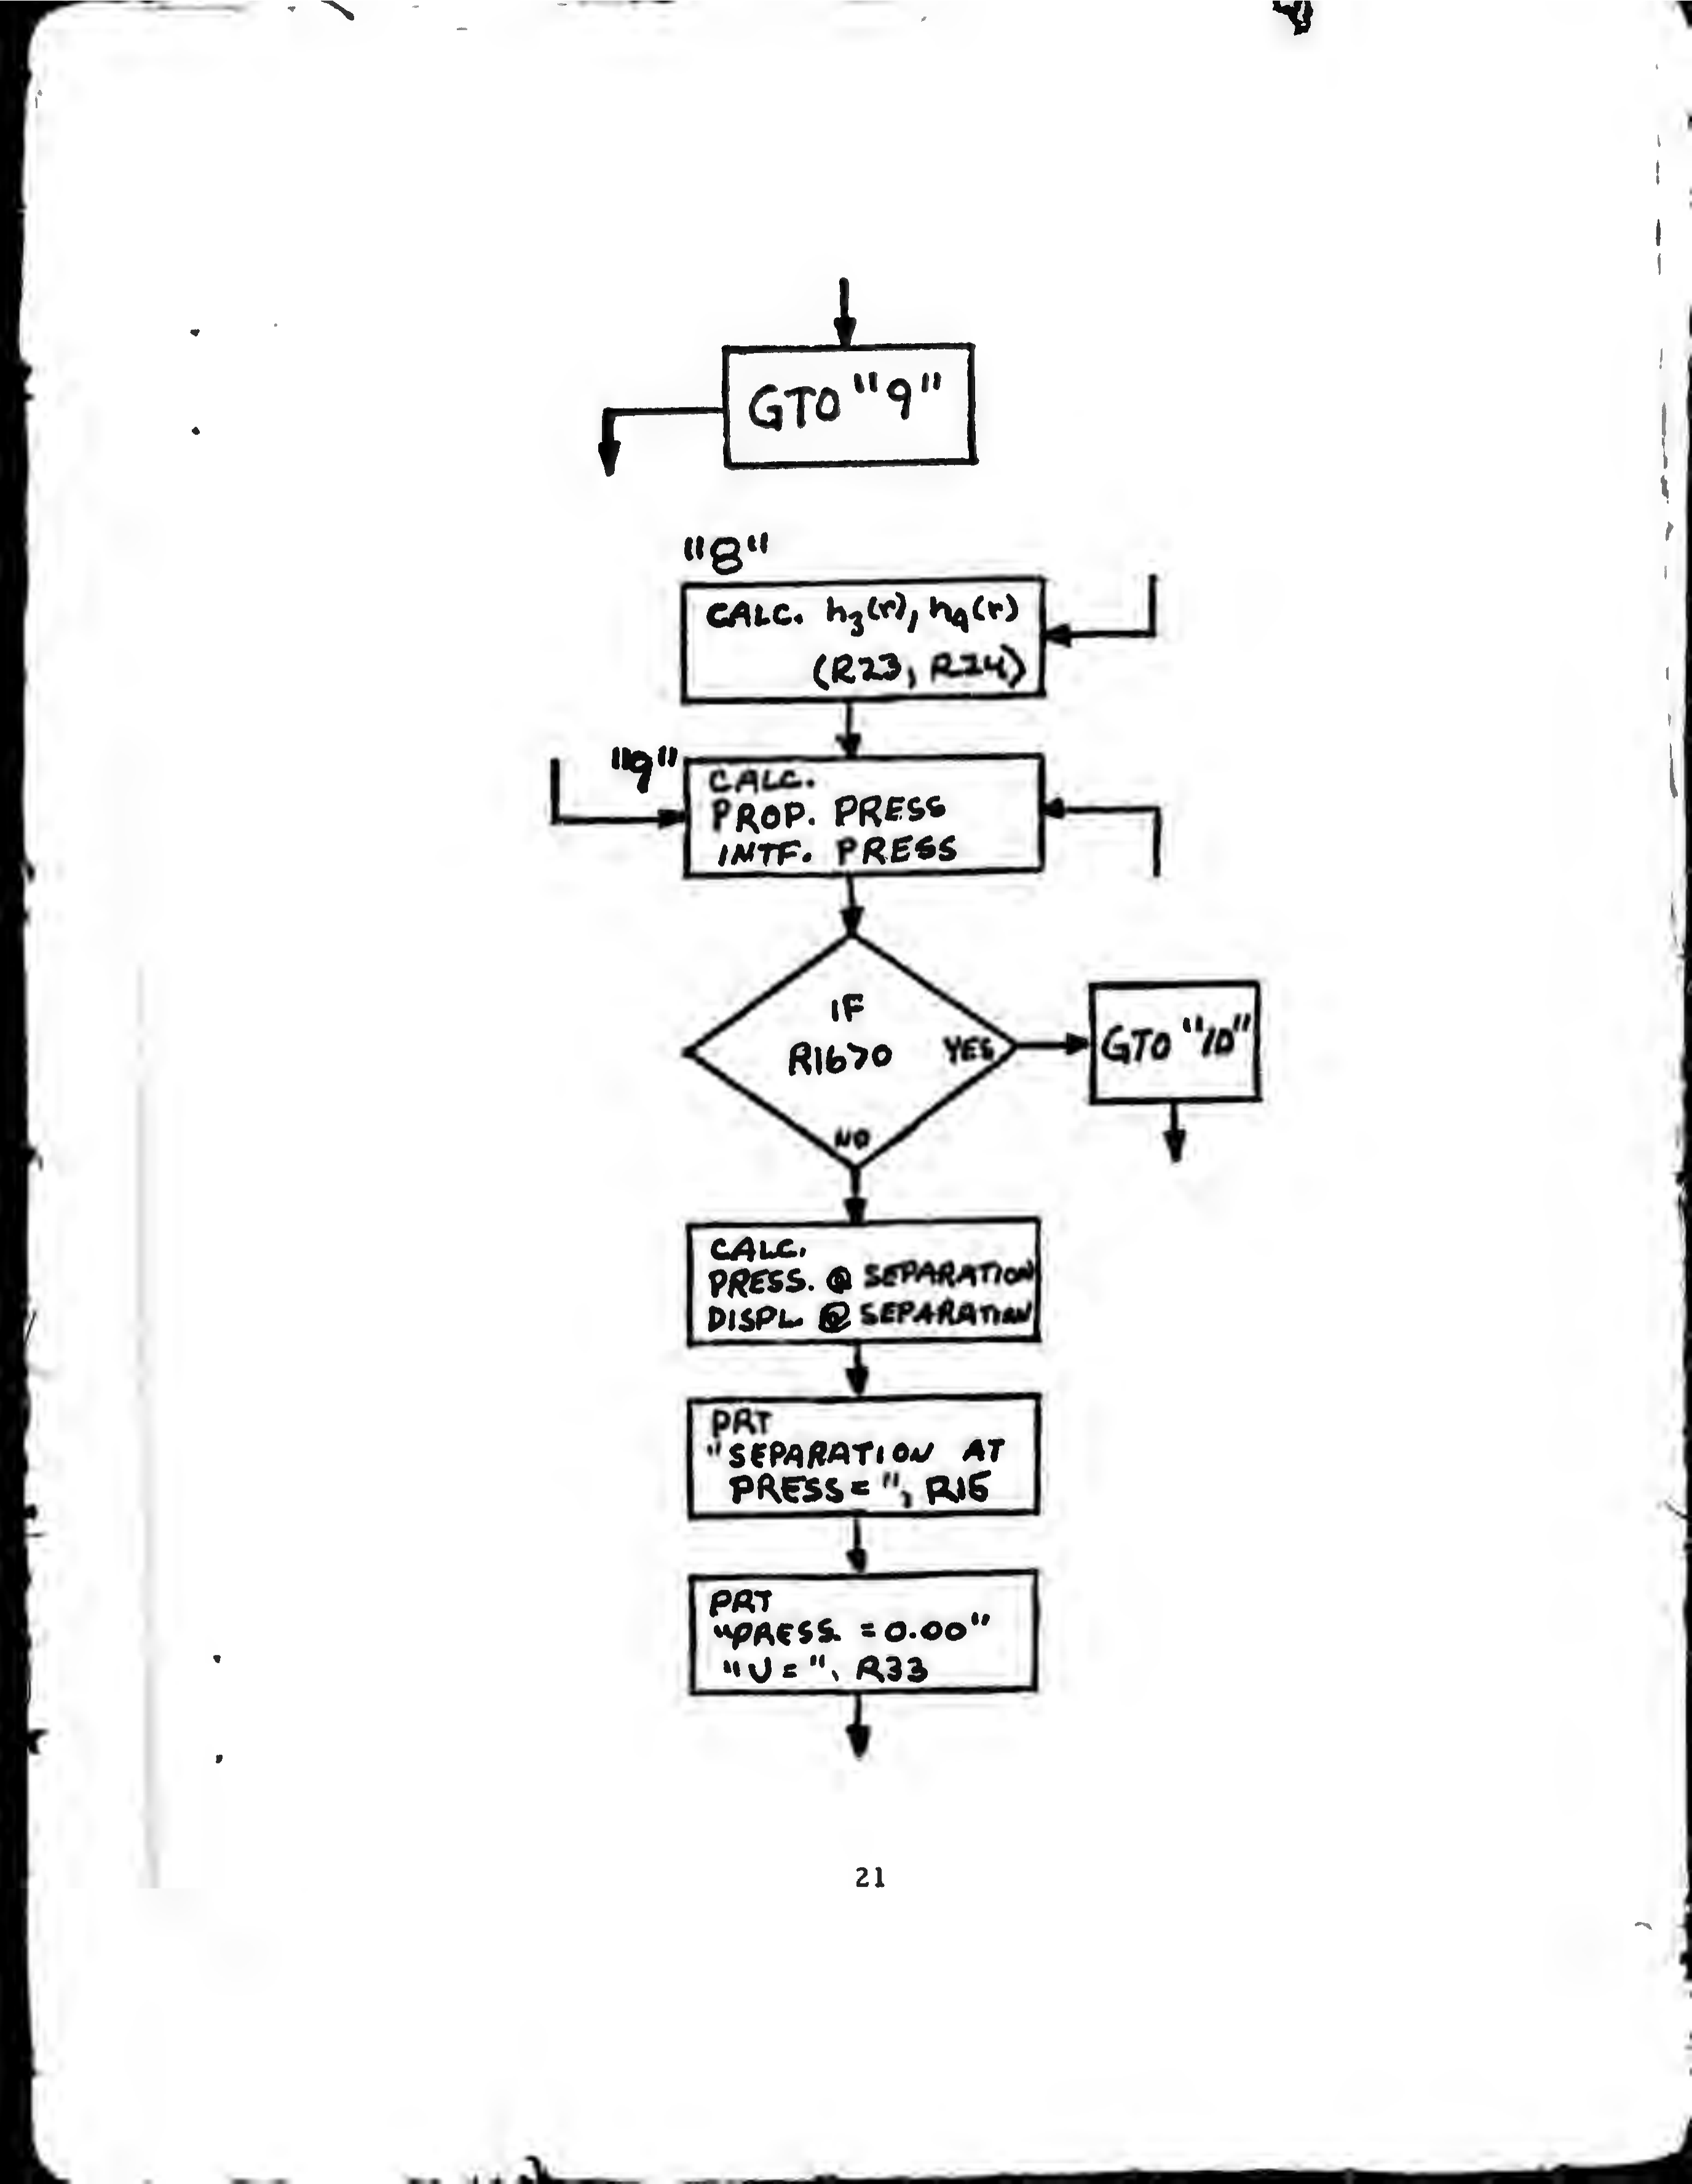 GTO "9"
"8"
CALC. h₃(r), h₄(r)
(R23, R24)
"9"
CALC.
PROP. PRESS
INTF. PRESS
IF
R16>0
YES
GTO "10"
NO
CALC.
PRESS. @ SEPARATION
DISPL. @ SEPARATION
PRT
"SEPARATION AT
PRESS= ", R15
PRT
"PRESS. =0.00"
"U= ", R33
21